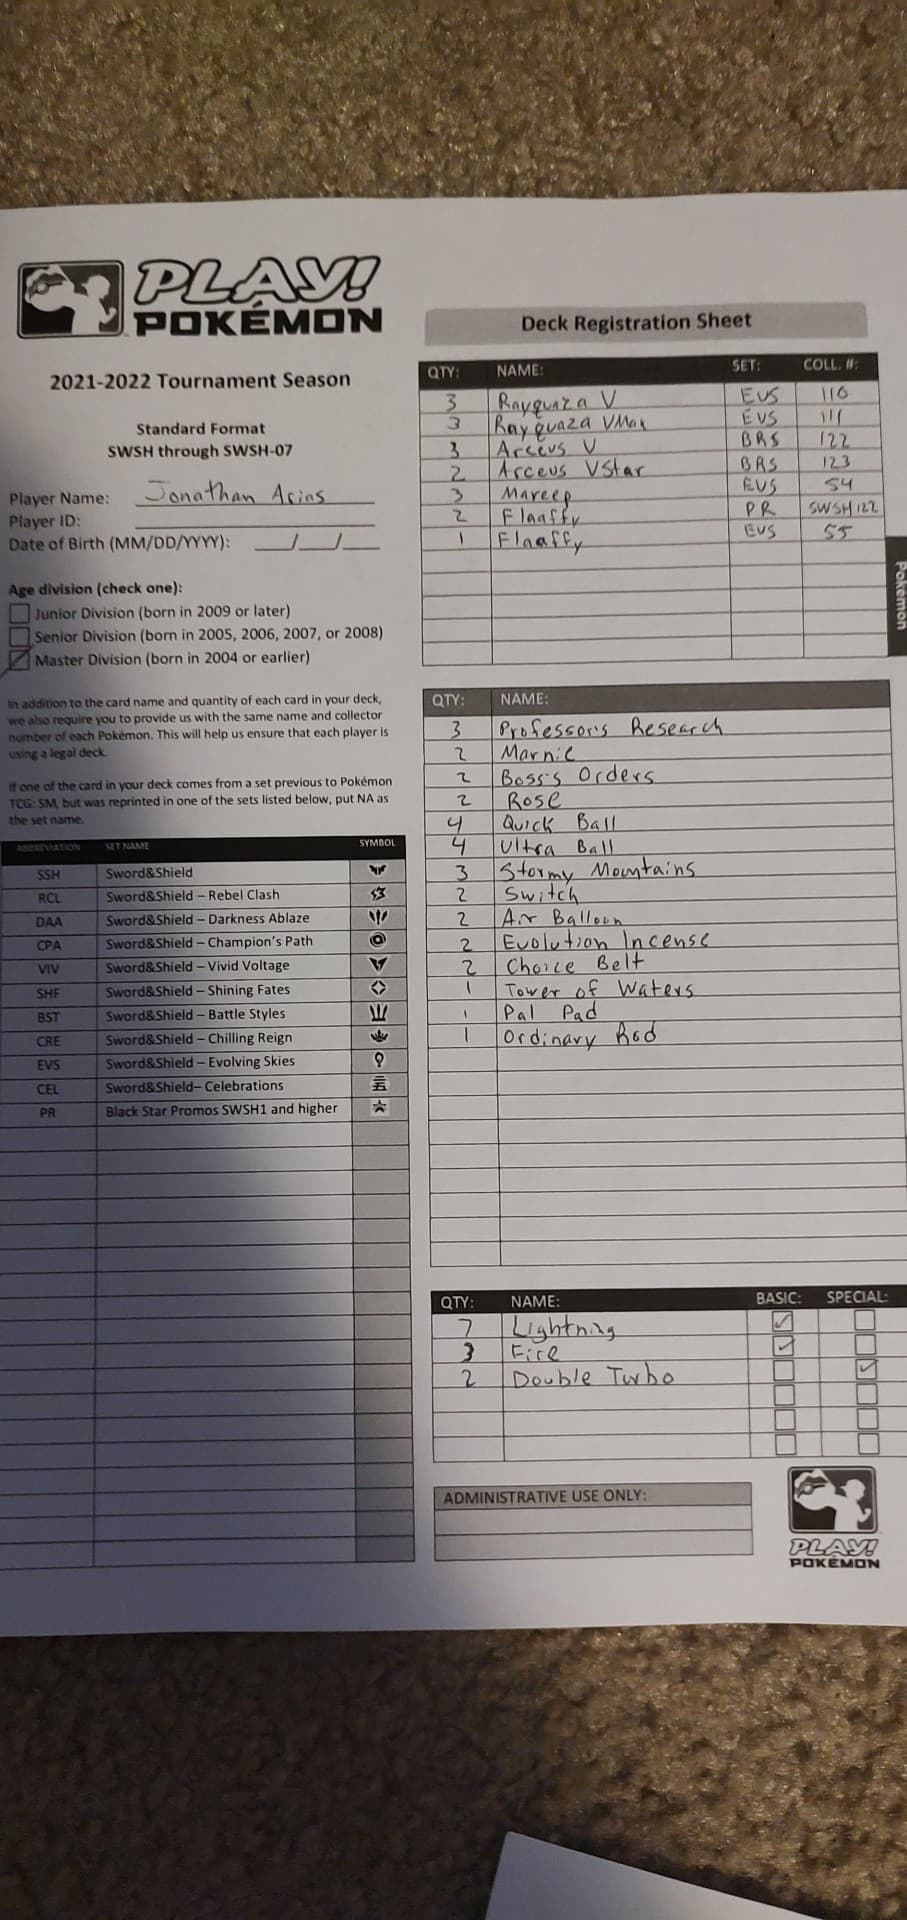 PLAY!
POKÉMON
2021-2022 Tournament Season
Standard Format
SWSH through SWSH-07
Player Name: Jonathan Arias
Player ID:
Date of Birth (MM/DD/YYYY): / /
Age division (check one):
Junior Division (born in 2009 or later)
Senior Division (born in 2005, 2006, 2007, or 2008)
Master Division (born in 2004 or earlier)
In addition to the card name and quantity of each card in your deck,
we also require you to provide us with the same name and collector
number of each Pokémon. This will help us ensure that each player is
using a legal deck.
If one of the card in your deck comes from a set previous to Pokémon
TCG: SM, but was reprinted in one of the sets listed below, put NA as
the set name.
ABBREVIATION SET NAME SYMBOL
SSH Sword&Shield
RCL Sword&Shield – Rebel Clash
DAA Sword&Shield – Darkness Ablaze
CPA Sword&Shield – Champion's Path
VIV Sword&Shield – Vivid Voltage
SHF Sword&Shield – Shining Fates
BST Sword&Shield – Battle Styles
CRE Sword&Shield – Chilling Reign
EVS Sword&Shield – Evolving Skies
CEL Sword&Shield– Celebrations
PR Black Star Promos SWSH1 and higher
Deck Registration Sheet
QTY: NAME: SET: COLL. #:
3 Rayquaza V EVS 110
3 Rayquaza VMax EVS 111
3 Arceus V BRS 122
2 Arceus VStar BRS 123
3 Mareep EVS 54
2 Flaaffy PR SWSH122
1 Flaaffy EVS 55
Pokémon
QTY: NAME:
3 Professor's Research
2 Marnie
2 Boss's Orders
2 Rose
4 Quick Ball
4 Ultra Ball
3 Stormy Mountains
2 Switch
2 Air Balloon
2 Evolution Incense
2 Choice Belt
1 Tower of Waters
1 Pal Pad
1 Ordinary Rod
QTY: NAME: BASIC: SPECIAL:
7 Lightning
3 Fire
2 Double Turbo
ADMINISTRATIVE USE ONLY:
PLAY!
POKÉMON